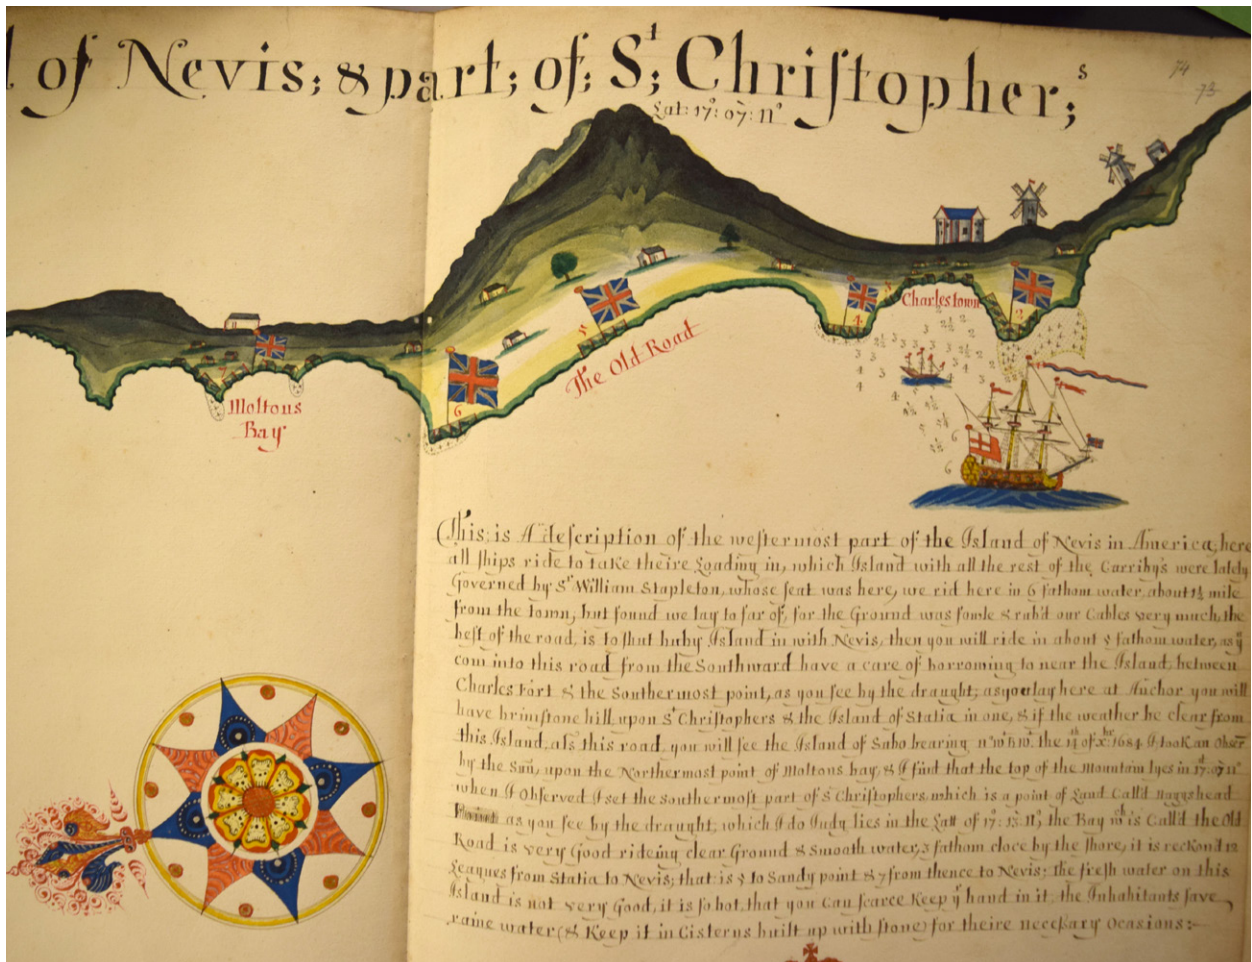 of Nevis; & part; of; St; Christopher;s
74
73
Lat: 17°: 07: N°
Charlestown
The Old Road
Moltons
Bay
2
3
4
5
6
7
This; is A description of the westermost part of the Island of Nevis in America; here
all ships ride to take theire Loading in, which Island with all the rest of the Carriby's were lately
Governed by Sr William Stapleton, whose seat was here, we rid here in 6 fathom water, about mile
from the town, but found we lay to far of, for the Ground was fowle & rub'd our Cables very much, the
best of the road, is to shut buby Island in with Nevis, then you will ride in about fathom water, as ye
com into this road from the Southward have a care of borrowing to near the Island, between
Charles Fort & the Southermost point, as you see by the draught; as you lay here at Anchor you will
have brimstone hill, upon St Christophers & the Island of Statia in one, & if the weather be clear from
this Island, als this road, you will see the Island of Sabo bearing the of 1684 I took an Obser
by the Sun, upon the Northermost point of Moltons bay, & I find that the top of the Mountain lyes in 17:07 N°
when I Observed I set the southermost part of St Christophers, which is a point of Land Call'd
as you see by the draught, which I do Judg lies in the Latt of 17: the Bay wch is Call'd the Old
Road is very Good rideing clear Ground & Smooth water, fathom cloce by the shore, it is reckond 12
Leagues from Statia to Nevis; that is 5 to Sandy point & 7 from thence to Nevis; the fresh water on this
Island is not very Good, it is so hot, that you Can scarce Keep yr hand in it, the Inhabitants save
raine water (& Keep it in Cisterns built up with stone) for theire necessary Ocasions:~